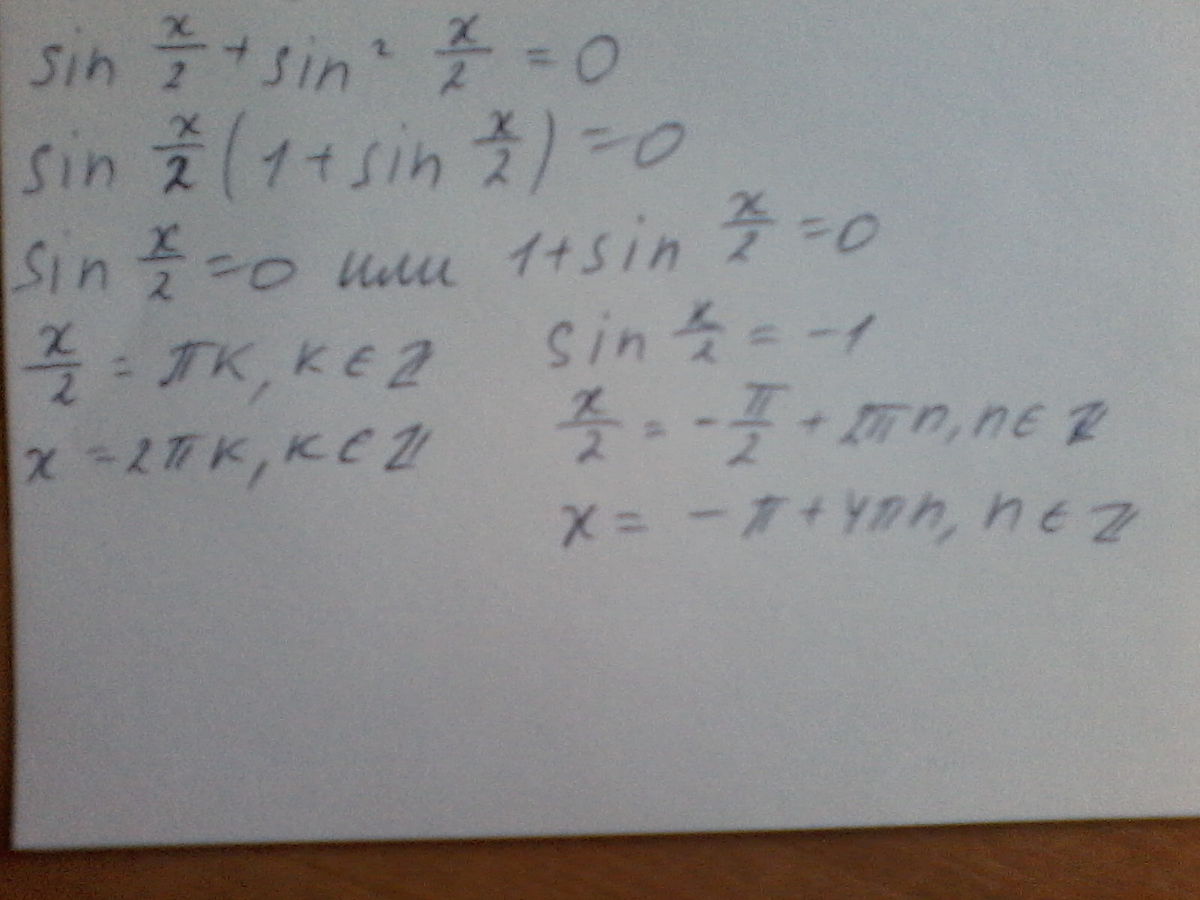 sin x/2 + sin² x/2 = 0
sin x/2 (1 + sin x/2) = 0
sin x/2 = 0 или 1 + sin x/2 = 0
x/2 = πк, к ∈ ℤ
sin x/2 = -1
x = 2πк, к ∈ ℤ
x/2 = -π/2 + 2πn, n ∈ ℤ
x = -π + 4πn, n ∈ ℤ